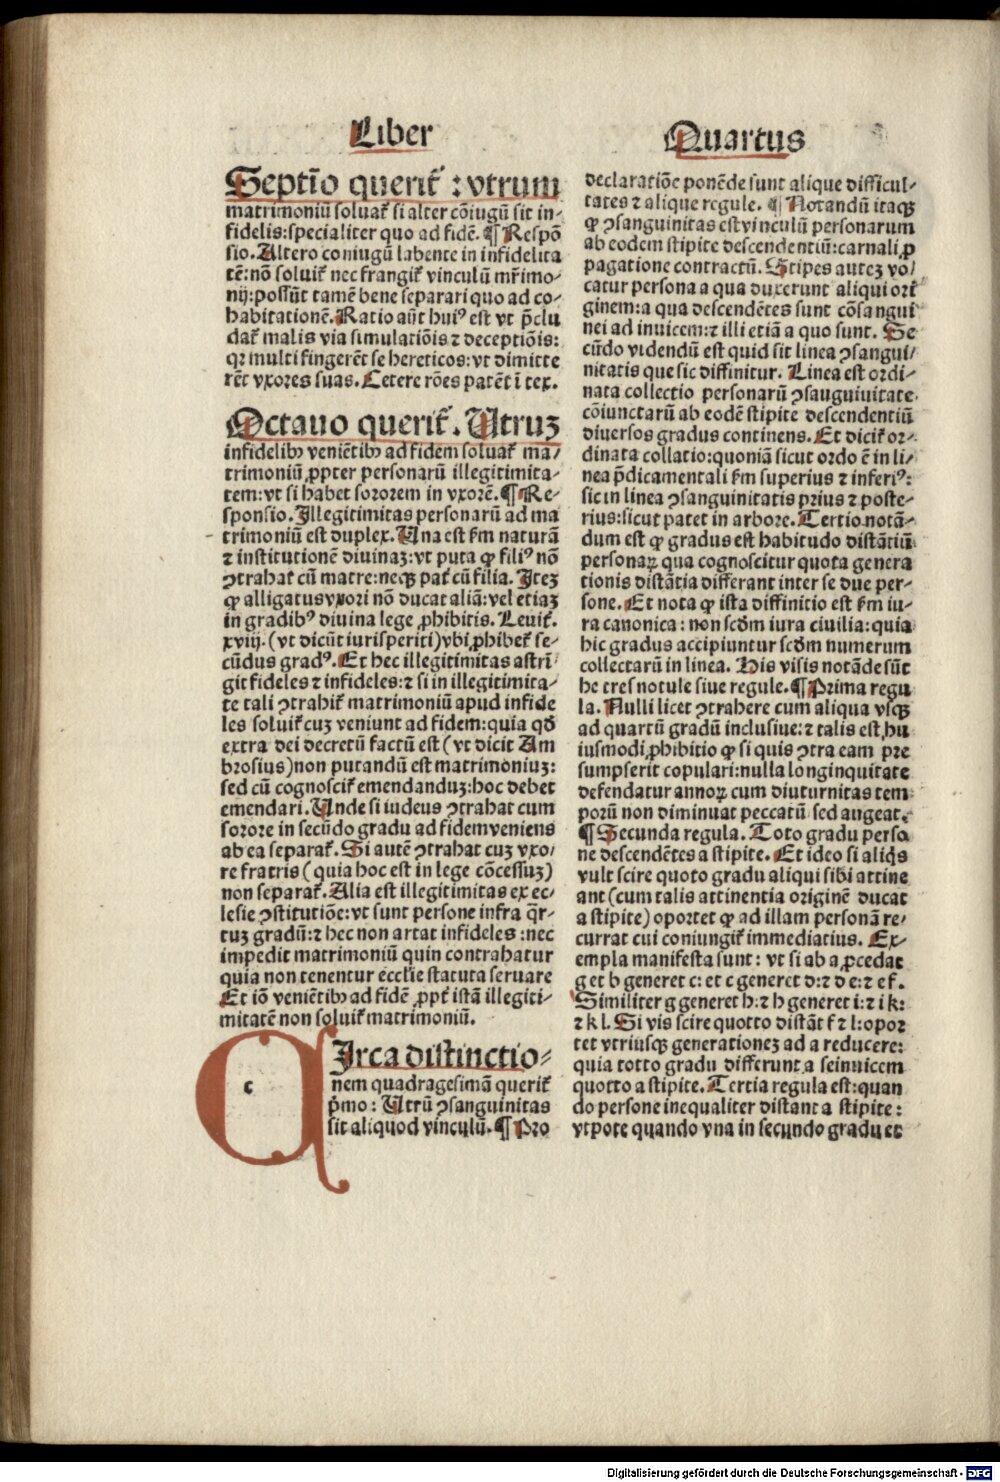 Liber
Quartus
Septīo querit᷑ : vtrum
matrimoniū soluat᷑ si alter cōiugū sit in-
fidelis: specialiter quo ad fidē. ¶ Respō
sio. Altero coniugū labente in infidelita
tē: nō soluit᷑ nec frangit᷑ vinculū mr̄imo-
nij: possūt tamē bene separari quo ad co-
habitationē. Ratio aūt huiꝰ est vt p̄clu
dat᷑ malis via simulatiōis ⁊ deceptiōis:
qꝛ multi fingerēt se hereticos: vt dimitte
rēt vxores suas. Cetere rōes patēt ī tex.
Octauo querit᷑. Utruꝫ
infidelibꝫ veniētibꝫ ad fidem soluat᷑ ma-
trimoniū ꝓpter personarū illegitimita-
tem: vt si habet sororem in vxorē. ¶ Re-
sponsio. Illegitimitas personarū ad ma
trimoniū est duplex. Una est ẜm naturā
⁊ institutionē diuinaꝫ: vt puta ꝙ filiꝰ nō
ꝯtrahat᷑ cū matre: neqꝫ pat᷑ cū filia. Iteꝫ
ꝙ alligatus vxori nō ducat aliā: vel etiaꝫ
in gradibꝰ diuina lege ꝓhibitis. Leuit᷑.
xviij. (vt dicūt iurisperiti) vbi ꝓhibet᷑ se-
cūdus gradꝰ. Et hec illegitimitas astrī-
git fideles ⁊ infideles: ⁊ si in illegitimita-
te tali ꝯtrahit᷑ matrimoniū apud infide
les soluit᷑ cuꝫ veniunt ad fidem: quia qď
extra dei decretū factū est (vt dicit Am
brosius) non putandū est matrimoniuꝫ:
sed cū cognoscit᷑ emendanduꝫ: hoc debet
emendari. Unde si iudeus ꝯtrahat cum
sorore in secūdo gradu ad fidem veniens
ab ea separat᷑. Si autē ꝯtrahat cuꝫ vxo-
re fratris (quia hoc est in lege cōcessuꝫ)
non separat᷑. Alia est illegitimitas ex ec-
lesie ꝯstitutiōe: vt sunt persone infra q̄r-
tuꝫ gradū: ⁊ hec non artat infideles: nec
impedit matrimoniū quin contrahatur
quia non tenentur eccl̄ie statuta seruare
Et iō veniētibꝫ ad fidē ꝓpt᷑ istā illegiti-
mitatē non soluit᷑ matrimoniū.
c
CIrca distinctio-
nem quadragesimā querit᷑
p̄mo: Utrū ꝯsanguinitas
sit aliquod vinculū. ¶ Pro
declaratiōe ponēde sunt alique difficul-
tates ⁊ alique regule. ¶ Notandū itaqꝫ
ꝙ ꝯsanguinitas est vinculū personarum
ab eodem stipite descendentiū: carnali ꝓ
pagatione contractū. Stipes auteꝫ vo-
catur persona a qua duxerunt aliqui ori
ginem: a qua descendētes sunt cōsangui
nei ad inuicem: ⁊ illi etiā a quo sunt. Se
cūdo videndū est quid sit linea ꝯsangui-
nitatis que sic diffinitur. Linea est ordi-
nata collectio personarū ꝯsauguiuitate
cōiunctarū ab eodē stipite descendentiū
diuersos gradus continens. Et dicit᷑ or-
dinata collatio: quoniā sicut ordo ē in li-
nea p̄dicamentali ẜm superius ⁊ inferiꝰ:
sic in linea ꝯsanguinitatis prius ⁊ poste-
rius: sicut patet in arbore. Tertio notā-
dum est ꝙ gradus est habitudo distātiū
personaꝝ qua cognoscitur quota genera
tionis distātia differant inter se due per-
sone. Et nota ꝙ ista diffinitio est ẜm iu-
ra canonica: non scďm iura ciuilia: quia
hic gradus accipiuntur scďm numerum
collectarū in linea. His visis notāde sūt
he tres notule siue regule. ¶ Prima regu
la. Nulli licet ꝯtrahere cum aliqua vsqꝫ
ad quartū gradū inclusiue: ⁊ talis est hu
iusmodi ꝓhibitio ꝙ si quis ꝯtra eam pre
sumpserit copulari: nulla longinquitate
defendatur annoꝝ cum diuturnitas tem
porū non diminuat peccatū sed augeat.
¶ Secunda regula. Toto gradu perso
ne descendētes a stipite. Et ideo si aliq̄s
vult scire quoto gradu aliqui sibi attine
ant (cum talis attinentia originē ducat
a stipite) oportet ꝙ ad illam personā re-
currat cui coniungit᷑ immediatius. Ex-
empla manifesta sunt: vt si ab a ꝓcedat
g et b generet c: et c generet d: ⁊ d e: ⁊ e f.
Similiter g generet h: ⁊ h generet i: ⁊ i k:
⁊ k l. Si vis scire quotto distāt f ⁊ l: opor
tet vtriusqꝫ generationeꝫ ad a reducere:
quia totto gradu differunt a seinuicem
quotto a stipite. Tertia regula est: quan
do persone inequaliter distant a stipite:
vtpote quando vna in secundo gradu et
Digitalisierung gefördert durch die Deutsche Forschungsgemeinschaft - DFG